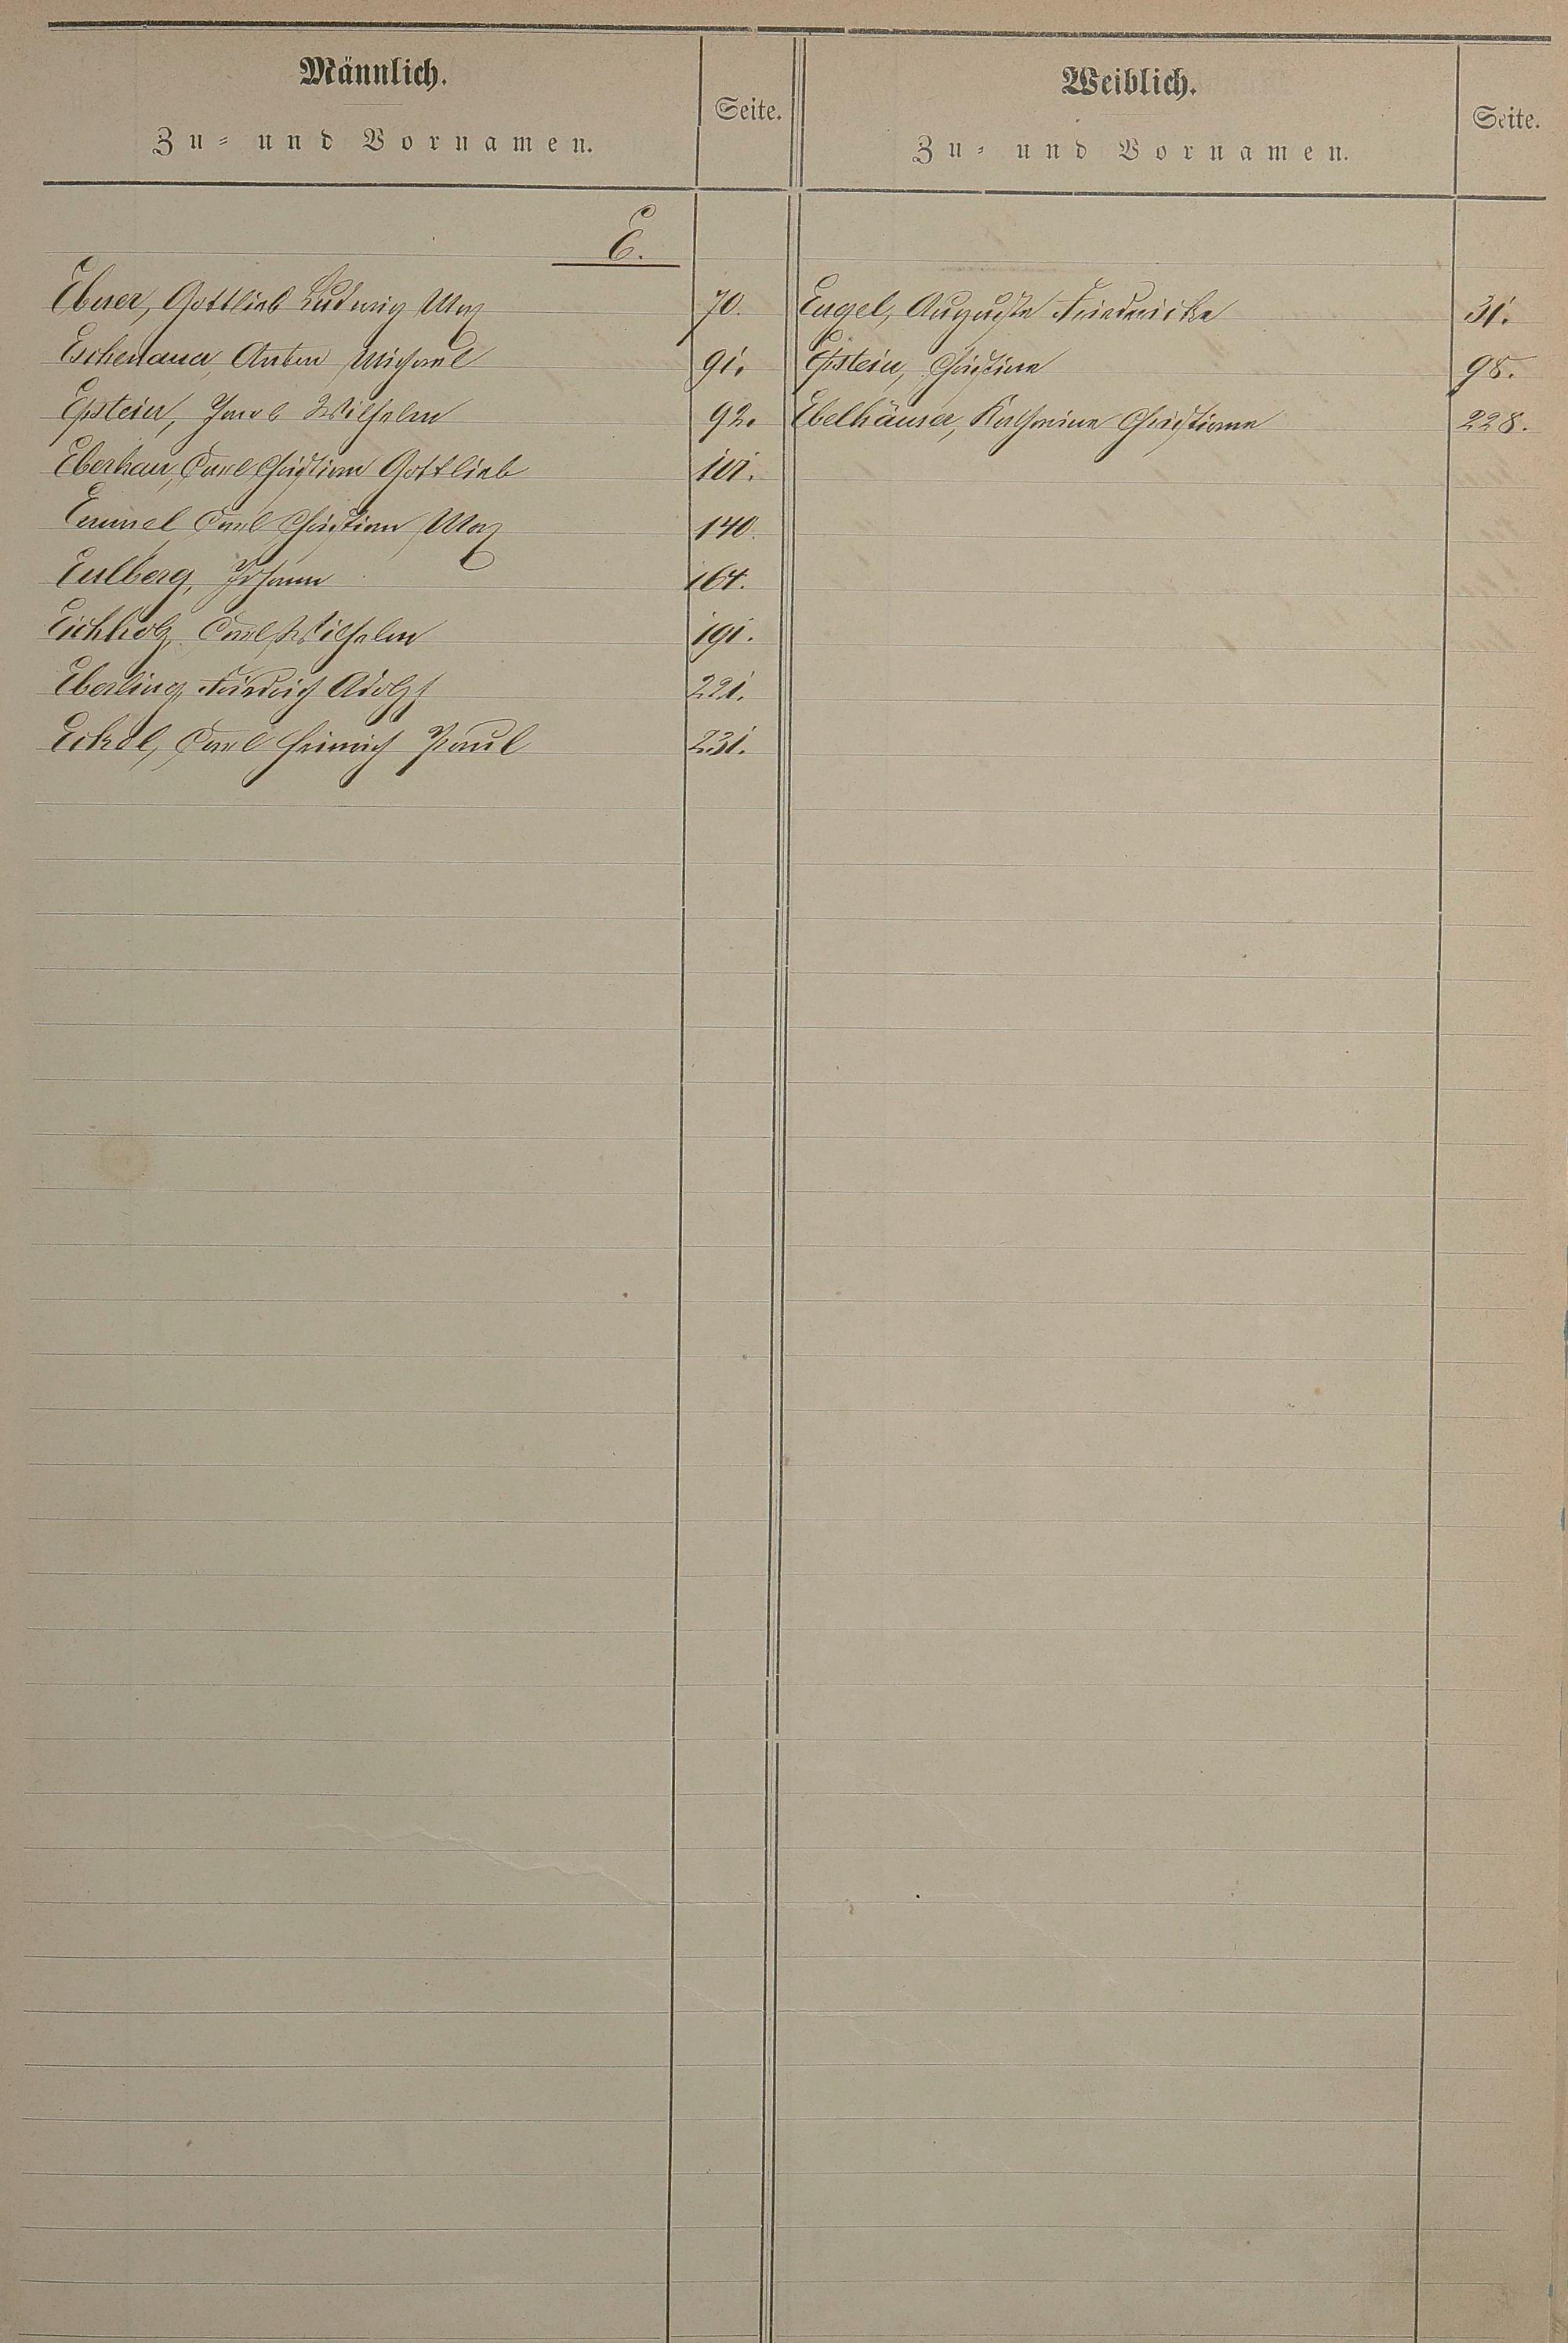 Männlich.
Zu- und Vornamen.
Seite.
Weiblich.
Zu- und Vornamen.
Seite.
E.
Ebner, Gottlieb Ludwig Max 70.
Eschenauer, Anton Michael 91.
Epstein, Jacob Wilhelm 92.
Eberhau, Carl Christian Gottlieb 101.
Emmel, Carl Christian Max 140.
Eulberg, Johann 164.
Eichholz, Carl Wilhelm 191.
Eberling, Friedrich Adolph 221.
Eckel, Carl Heinrich Paul 231.
Engel, Auguste Friedericke 31.
Epstein, Christine 98.
Ebelhäuser, Katharine Christiane 228.